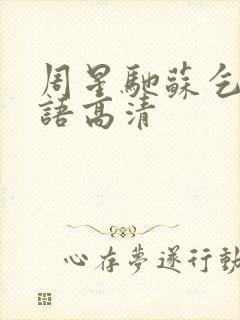 周星馳蘇乞
語高清
心存夢遂行動